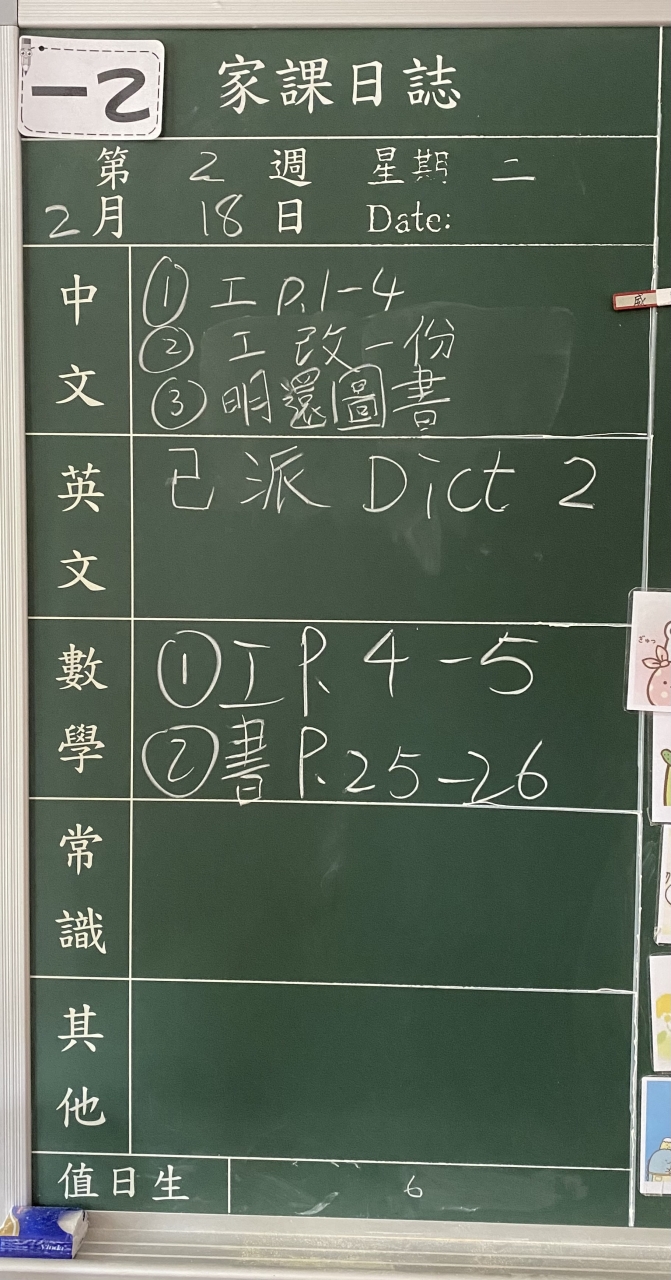 一乙
家課日誌
第 2 週 星期 二
2月 18日 Date:
中文
① 工 P.1-4
② 工 改一份
③ 明還圖書
英文
已派 Dict 2
數學
① 工 P. 4-5
② 書 P. 25-26
常識
其他
值日生 6